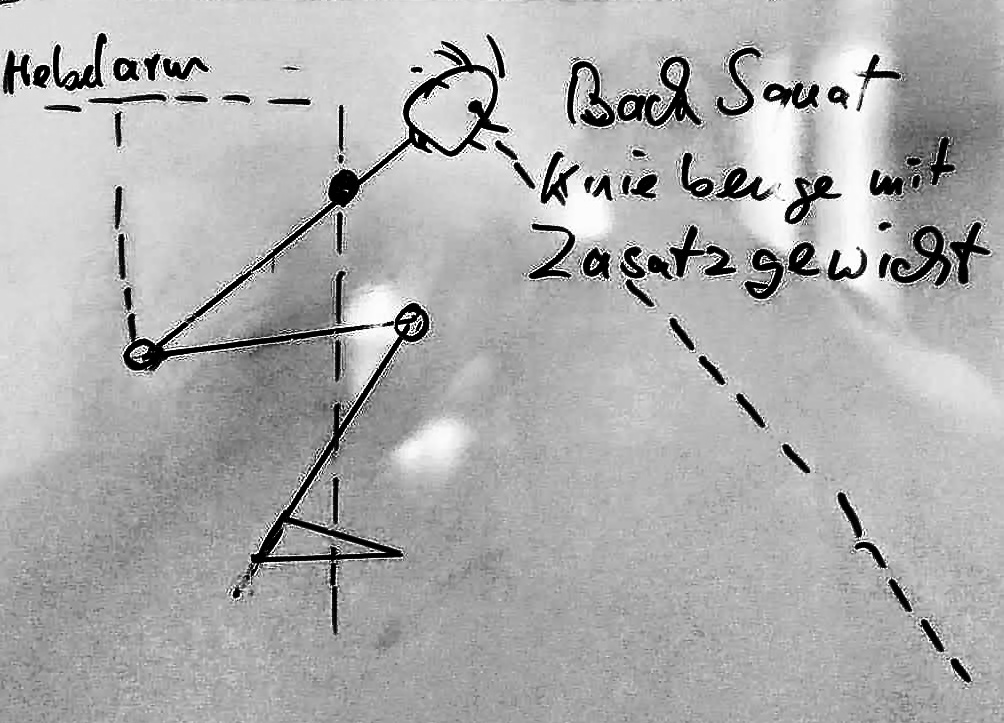 Hebelarm
Back Squat
Kniebeuge mit
Zusatzgewicht